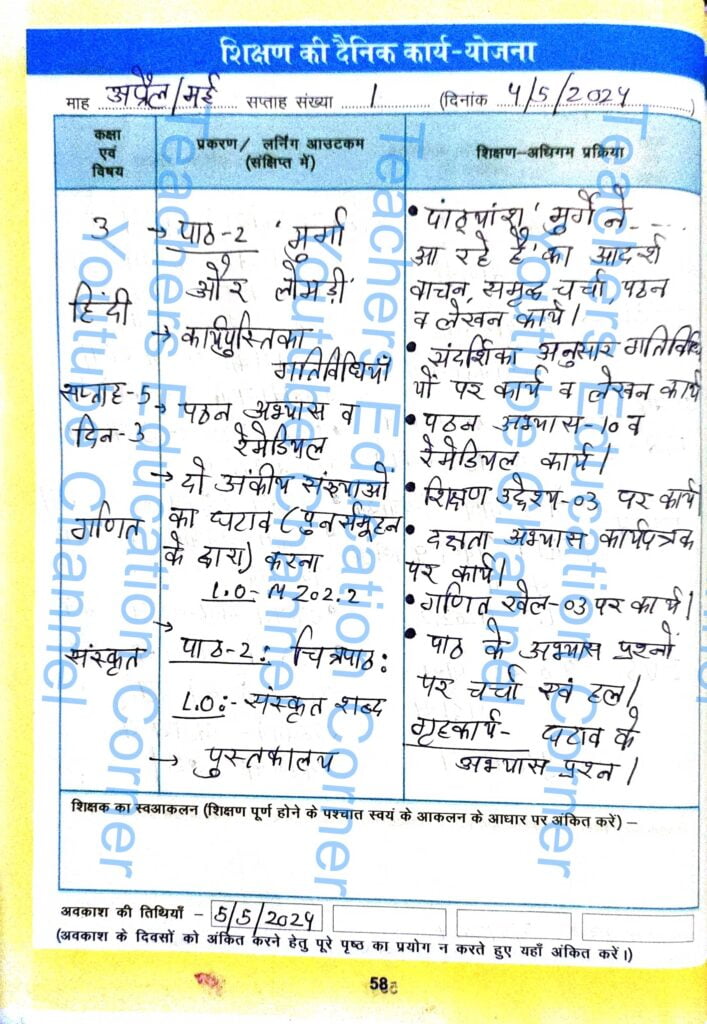 शिक्षण की दैनिक कार्य-योजना
माह अप्रैल/मई सप्ताह संख्या 1 (दिनांक 4/5/2024)
कक्षा
एवं
विषय
प्रकरण/ लर्निंग आउटकम
(संक्षिप्त में)
शिक्षण-अधिगम प्रक्रिया
3
हिंदी
सप्ताह-5
दिन-3
गणित
संस्कृत
→ पाठ-2 'मुर्गा
और लोमड़ी'
→ कार्यपुस्तिका
गतिविधियाँ
→ पठन अभ्यास व
रेमेडियल
→ दो अंकीय संख्याओं
का घटाव (पुनर्समूहन
के द्वारा) करना
L.O- M 202.2
→ पाठ-2: चित्रपाठ:
L.O:- संस्कृत शब्द
→ पुस्तकालय
• पाठ्यांश 'मुर्गे ने....
आ रहे हैं' का आदर्श
वाचन, समृद्ध चर्चा, पठन
व लेखन कार्य।
• संदर्शिका अनुसार गतिविधि
यों पर कार्य व लेखन कार्य
• पठन अभ्यास-10 व
रेमेडियल कार्य।
• शिक्षण उद्देश्य-03 पर कार्य।
• दक्षता अभ्यास कार्यपत्रक
पर कार्य।
• गणित खेल-03 पर कार्य।
• पाठ के अभ्यास प्रश्नों
पर चर्चा एवं हल।
गृहकार्य- घटाव के
अभ्यास प्रश्न।
शिक्षक का स्वआकलन (शिक्षण पूर्ण होने के पश्चात स्वयं के आकलन के आधार पर अंकित करें) –
अवकाश की तिथियाँ - 5/5/2024
(अवकाश के दिवसों को अंकित करने हेतु पूरे पृष्ठ का प्रयोग न करते हुए यहाँ अंकित करें।)
58
Teachers Education Corner
Youtube Channel
Teachers Education Corner
Youtube Channel
Teachers Education Corner